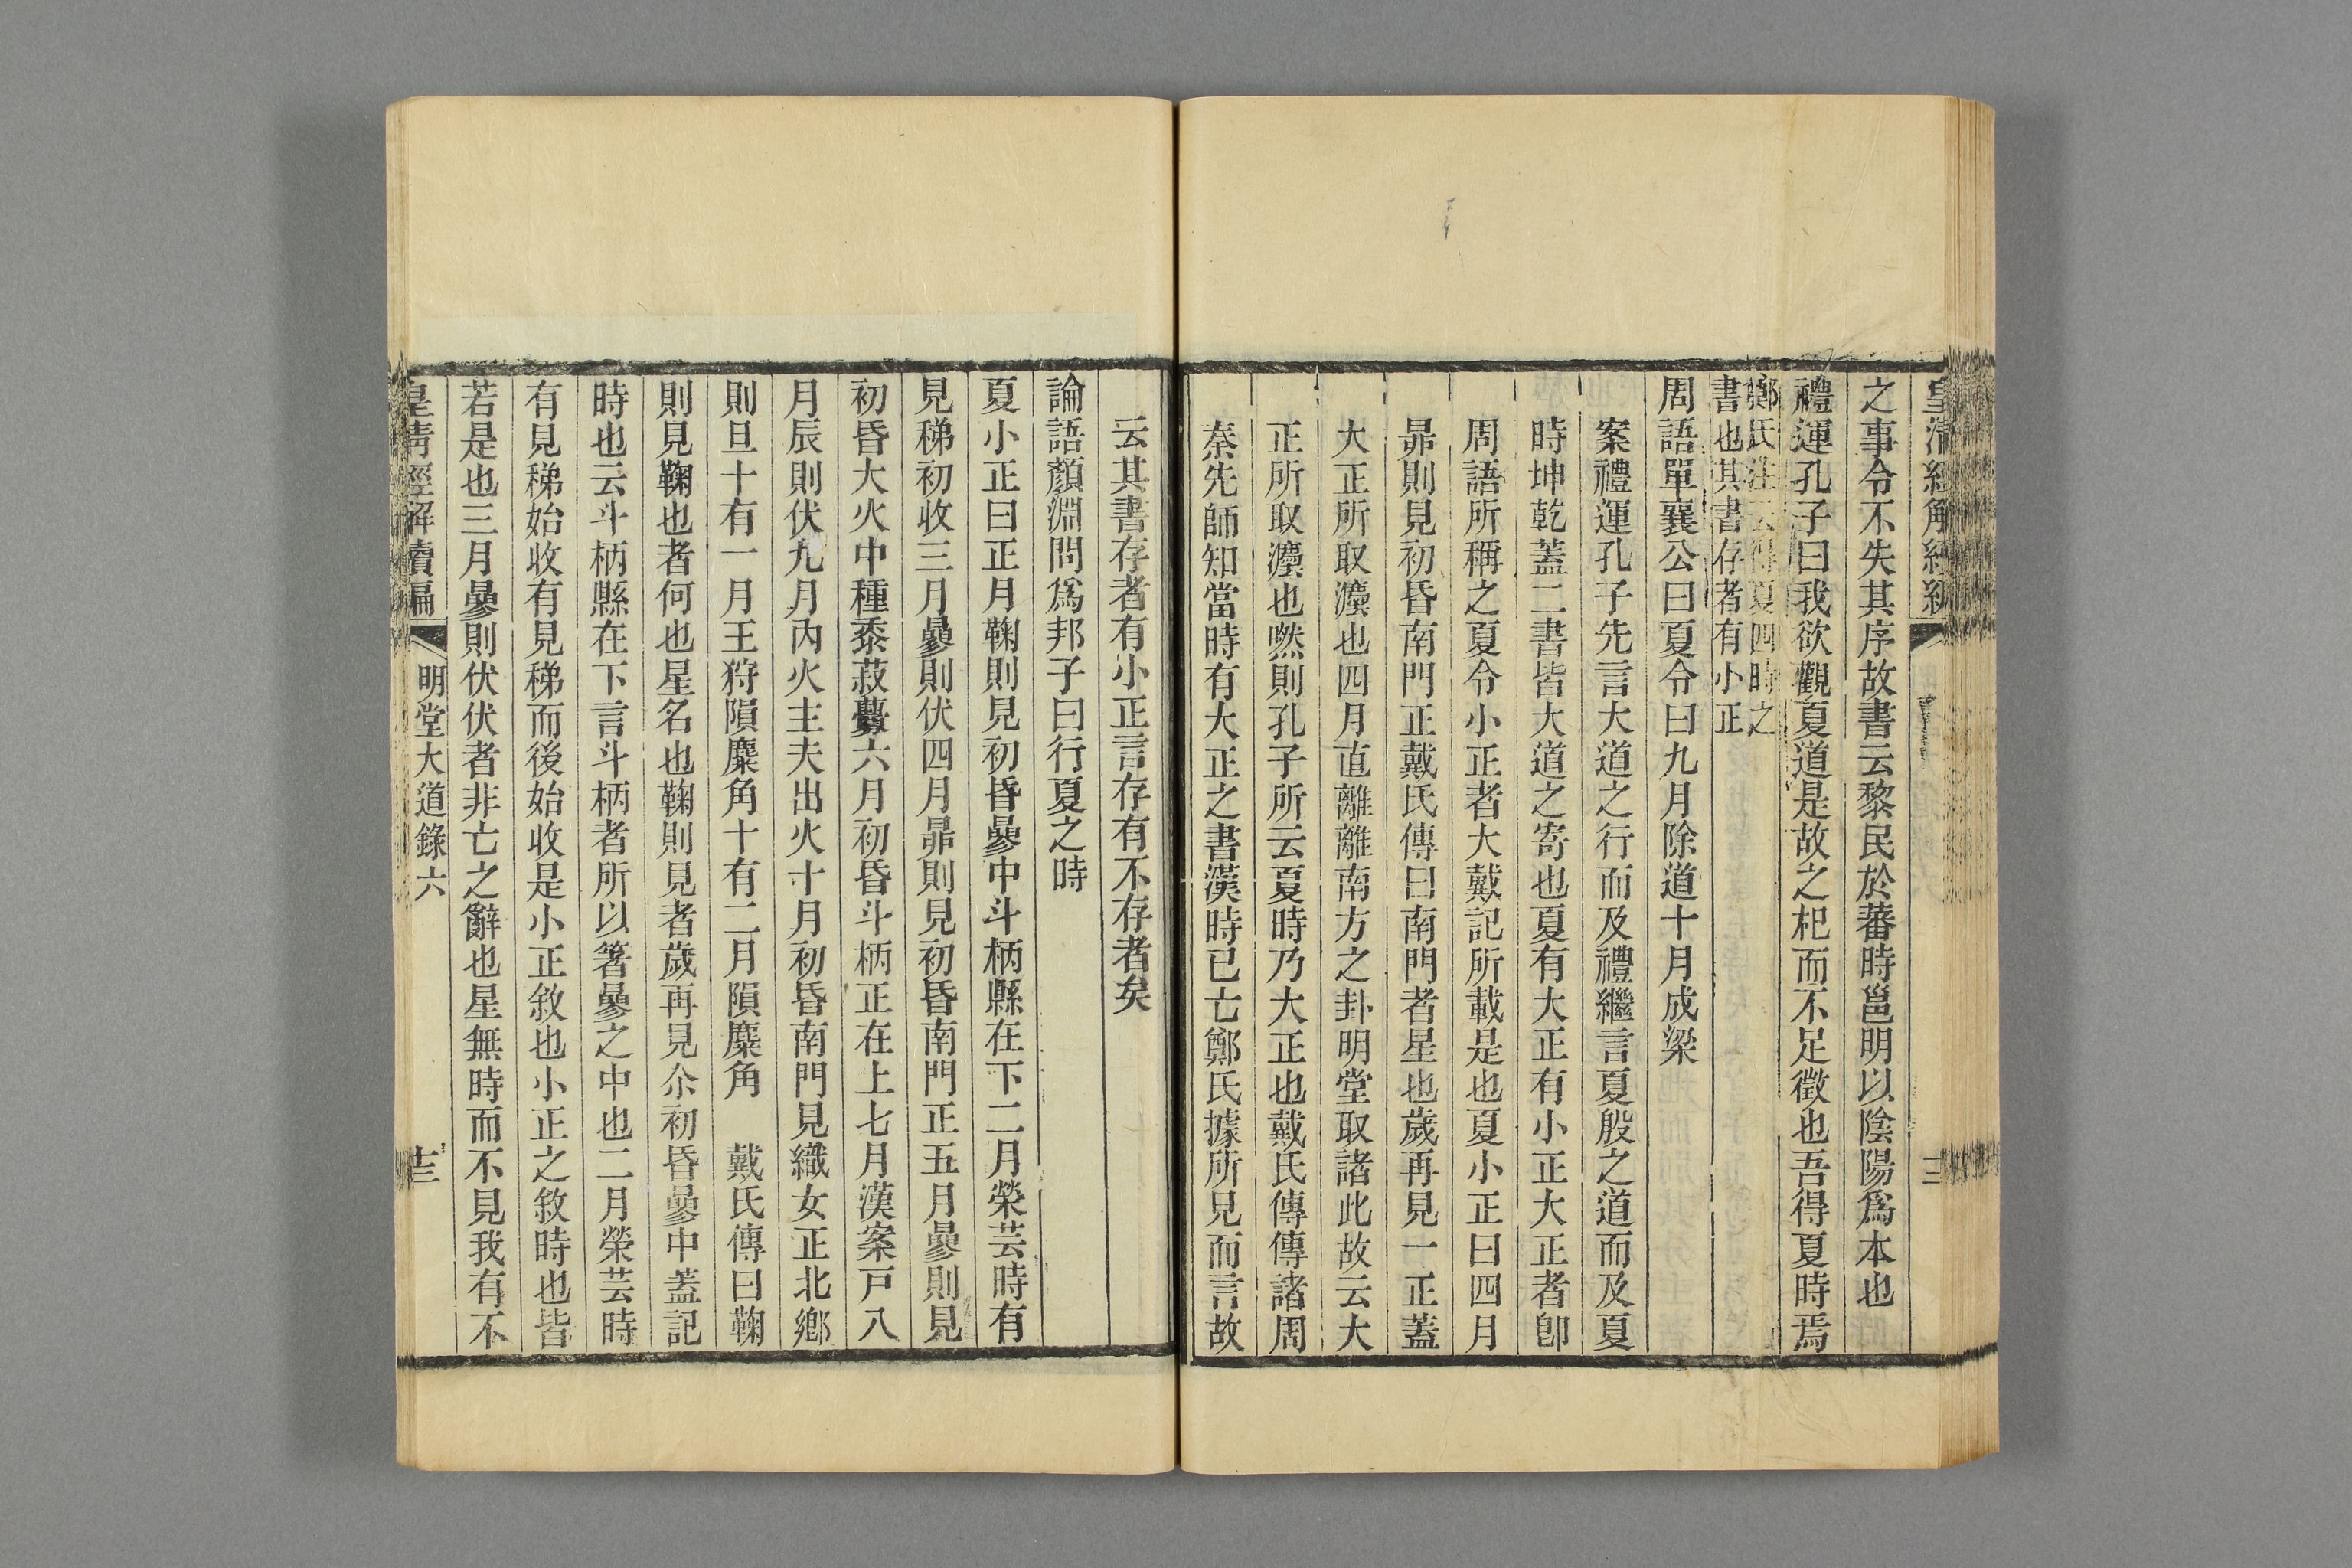 之事令不失其序故書云黎民於蕃時邕明以陰陽爲本也
禮運孔子曰我欲觀夏道是故之杞而不足徵也吾得夏時焉
鄭氏注云得夏四時之
書也其書存者有小正
周語單襄公曰夏令曰九月除道十月成梁
案禮運孔子先言大道之行而及禮繼言夏殷之道而及夏
時坤乾蓋二書皆大道之寄也夏有大正有小正大正者卽
周語所稱之夏令小正者大戴記所載是也夏小正曰四月
昴則見初昏南門正戴氏傳曰南門者星也歲再見一正蓋
大正所取灋也四月直離離南方之卦明堂取諸此故云大
正所取灋也嘫則孔子所云夏時乃大正也戴氏傳傳諸周
秦先師知當時有大正之書漢時已亡鄭氏據所見而言故
云其書存者有小正言存有不存者矣
論語顏淵問爲邦子曰行夏之時
夏小正曰正月鞠則見初昏曑中斗柄縣在下二月榮芸時有
見稊初收三月曑則伏四月昴則見初昏南門正五月曑則見
初昏大火中種黍菽糜六月初昏斗柄正在上七月漢案戸八
月辰則伏九月內火主夫出火十月初昏南門見織女正北鄉
則旦十有一月王狩隕麋角十有二月隕麋角　戴氏傳曰鞠
則見鞠也者何也星名也鞠則見者歲再見尒初昏曑中蓋記
時也云斗柄縣在下言斗柄者所以箸曑之中也二月榮芸時
有見稊始收有見稊而後始收是小正敘也小正之敘時也皆
若是也三月曑則伏伏者非亡之辭也星無時而不見我有不
皇清經解續編
明堂大道錄六
十三